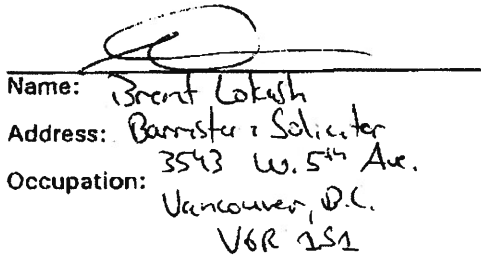 Name: Brent Lokash
Address: Barrister & Soliciter
3543 W. 5th Ave.
Occupation:
Vancouver, B.C.
V6R 1S1